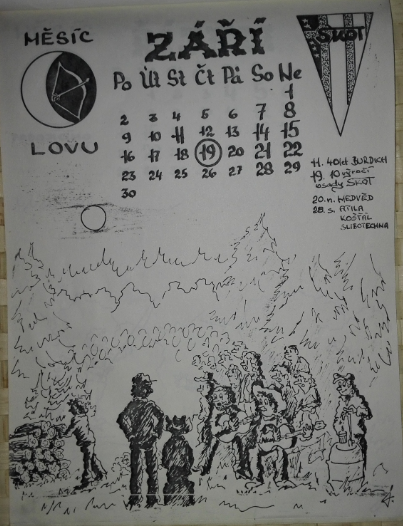 MĚSÍC
LOVU
ZÁŘÍ
Po Út St Čt Pá So Ne
1
2 3 4 5 6 7 8
9 10 11 12 13 14 15
16 17 18 19 20 21 22
23 24 25 26 27 28 29
30
ŠKOT
11. 40let BURDYCH
19. 10 výročí
osady ŠKOT
20. n. MEDVĚD
28. s. ATILA
KOŠŤÁL